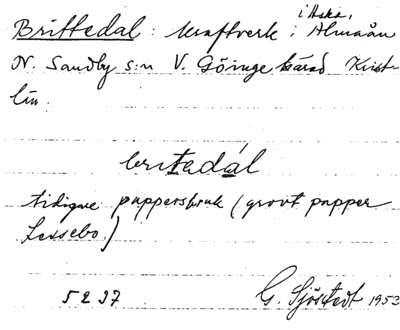 i Aska,
Brittedal: kraftverk i Almaån
N. Sandby s:n V. Göinge härad Krist-
län.
britadál
tidigare pappersbruk (grovt papper
Lessebo)
5237
G. Sjöstedt 1953